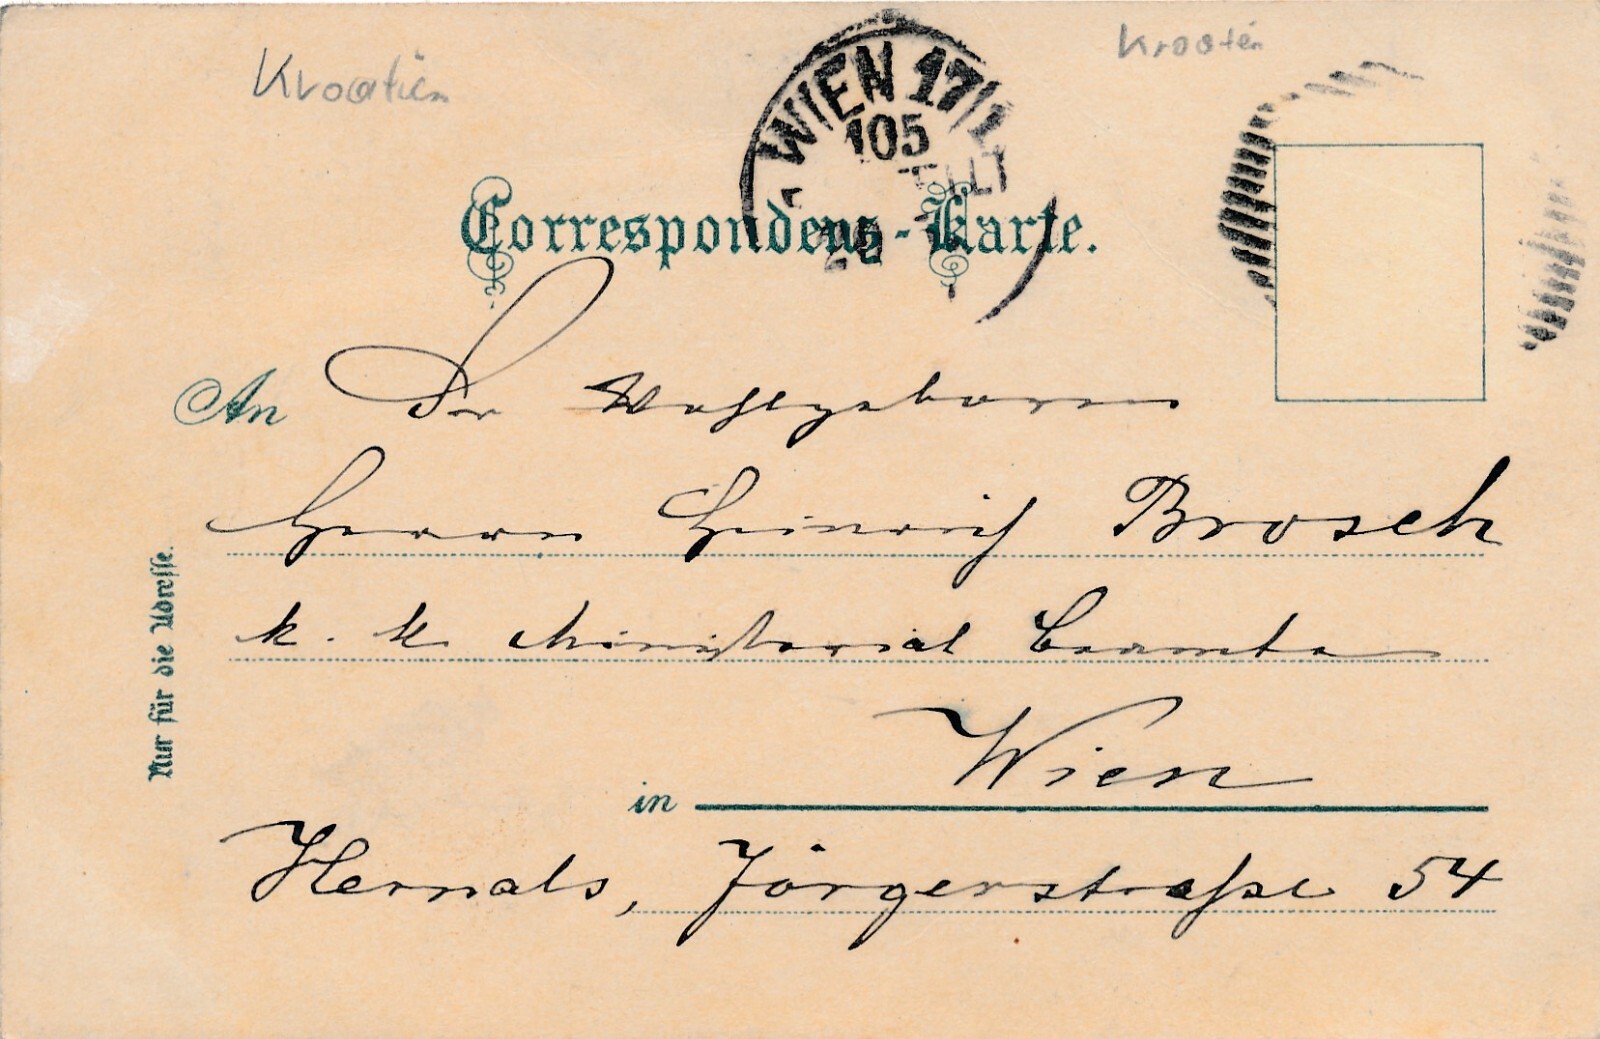 Kroatien
Kroatien
WIEN 17/1
105
Correspondenz-Karte.
An Sr Wohlgeboren
Herrn Heinrich Brosch
k. k. Ministerial Beamte
in Wien
Hernals, Jörgerstraße 54
Nur für die Adresse.